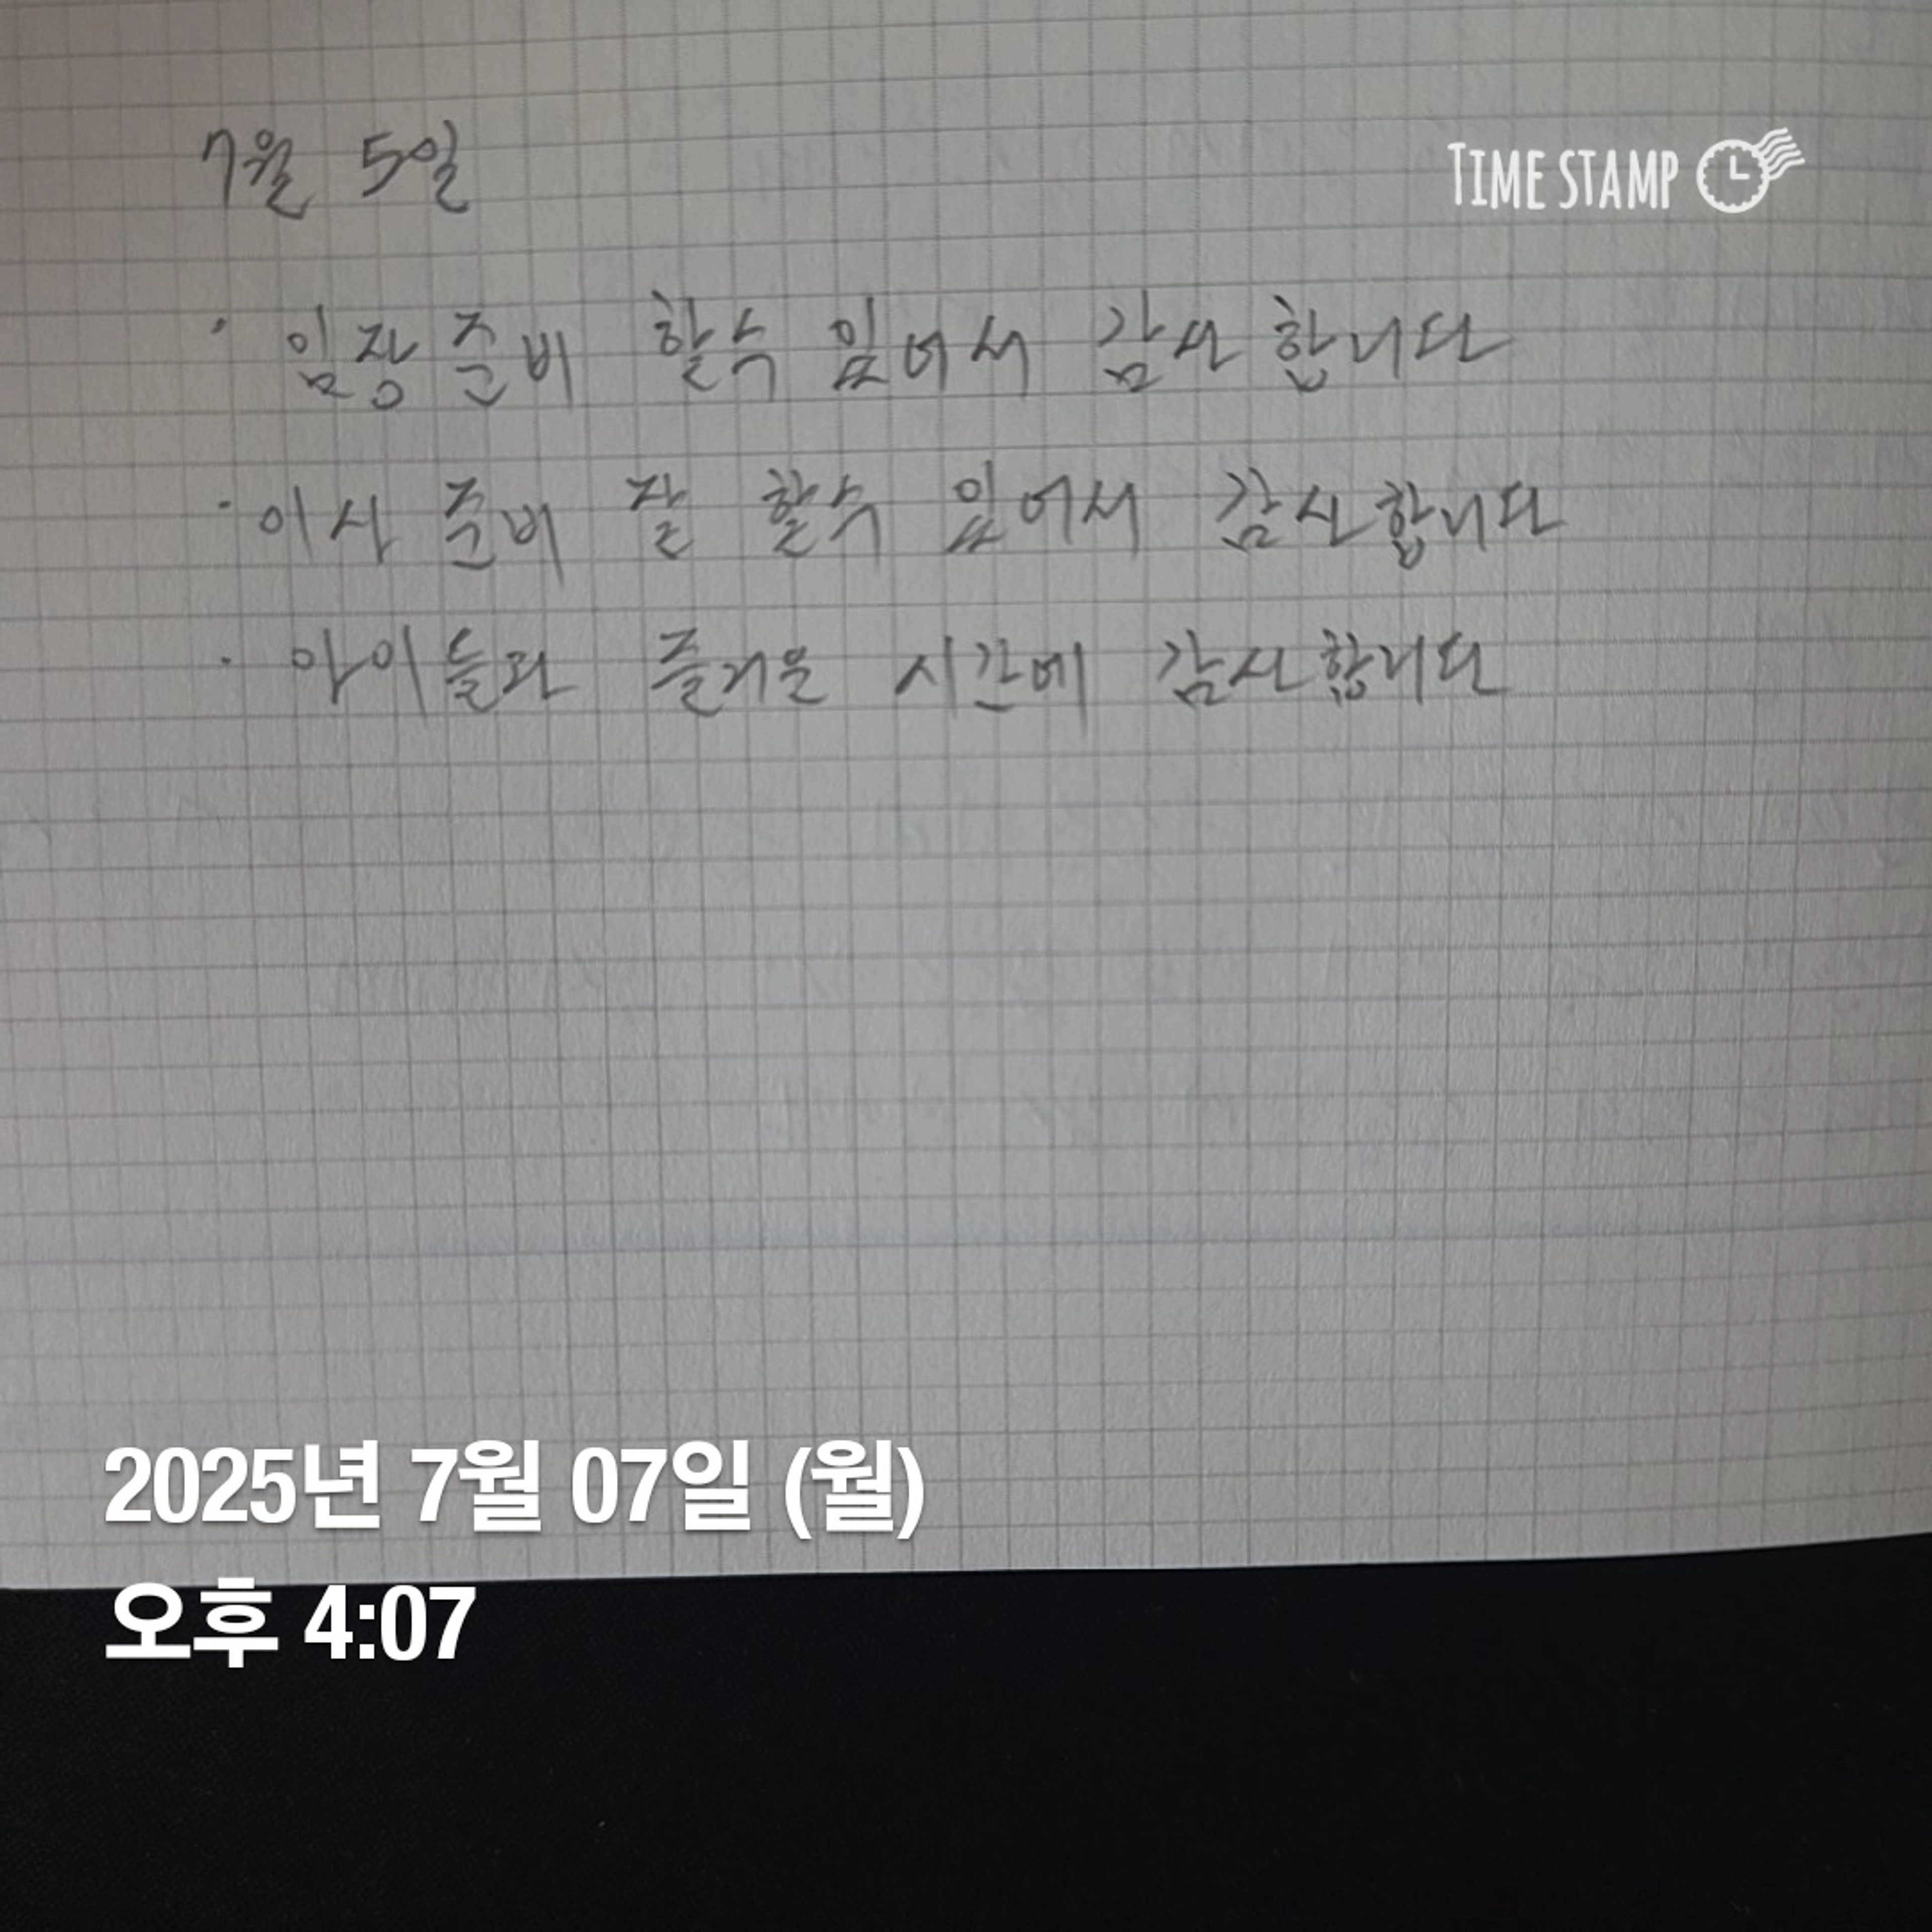 7월 5일
TIME STAMP
· 임장준비 할수 있어서 감사합니다
· 이사 준비 잘 할수 있어서 감사합니다
· 아이들과 즐거운 시간에 감사합니다
2025년 7월 07일 (월)
오후 4:07